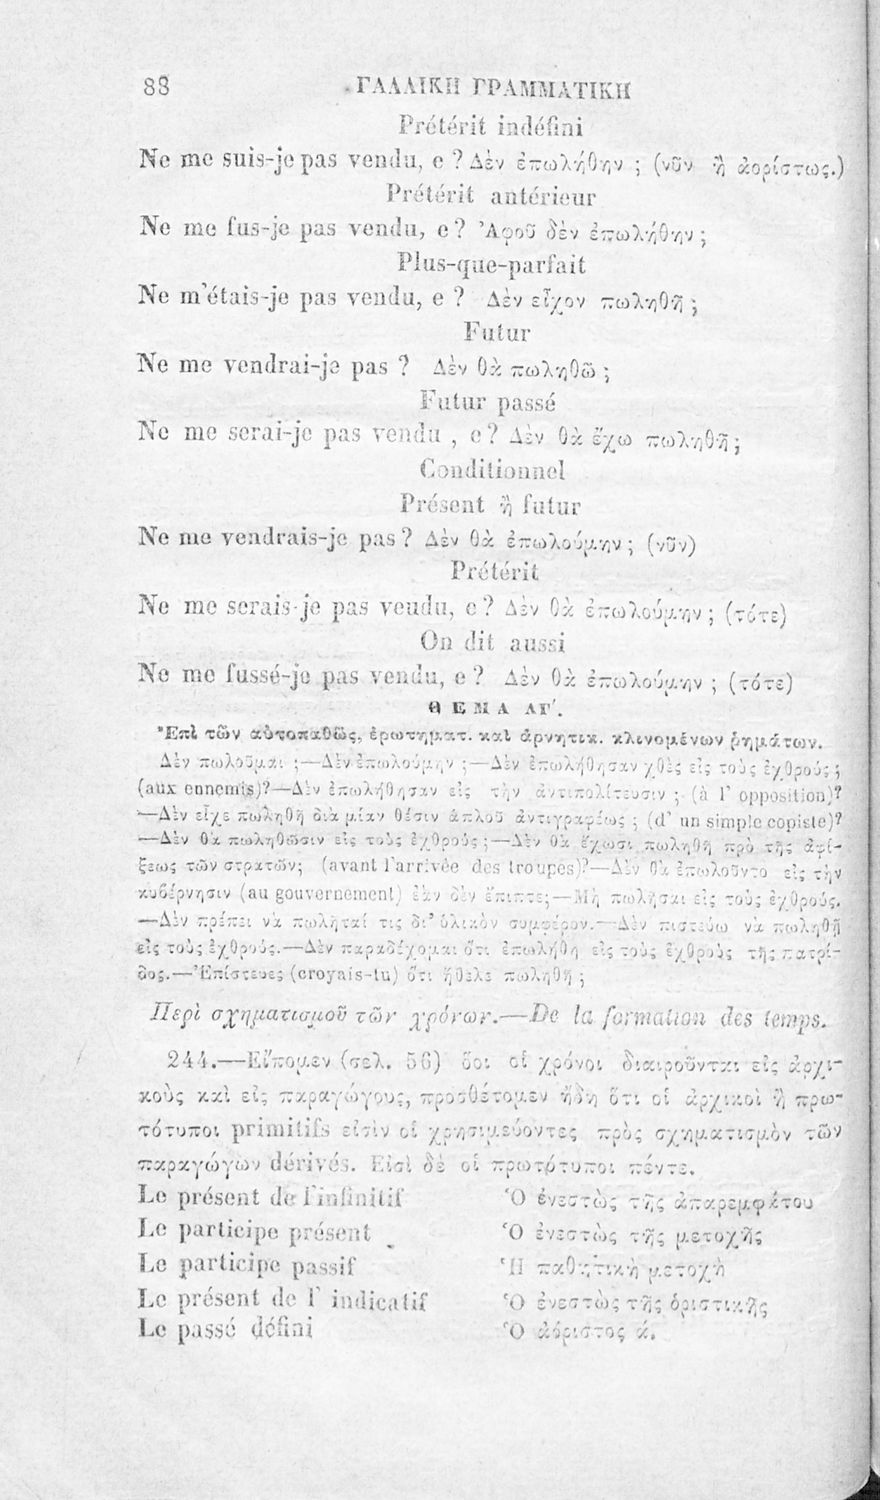 88 ΓΑΛΛΙΚΗ ΓΡΑΜΜΑΤΙΚΗ
Prétérit indéfini
Ne me suis-je pas vendu, e ? Δὲν ἐπωλήθην ; (νῦν ἢ ἀορίστως.)
Prétérit antérieur
Ne me fus-je pas vendu, e ? Ἀφοῦ δὲν ἐπωλήθην ;
Plus-que-parfait
Ne m'étais-je pas vendu, e ? Δὲν εἶχον πωληθῆ ;
Futur
Ne me vendrai-je pas ? Δὲν θὰ πωληθῶ ;
Futur passé
Ne me serai-je pas vendu , e ? Δὲν θὰ ἔχω πωληθῆ ;
Conditionnel
Présent ἢ futur
Ne me vendrais-je pas ? Δὲν θὰ ἐπωλούμην ; (νῦν)
Prétérit
Ne me serais-je pas vendu, e ? Δὲν θὰ ἐπωλούμην ; (τότε)
On dit aussi
Ne me fussé-je pas vendu, e ? Δὲν θὰ ἐπωλούμην ; (τότε)
ΘΕΜΑ ΛΓ΄.
Ἐπὶ τῶν αὐτοπαθῶς, ἐρωτηματ. καὶ ἀρνητικ. κλινομένων ῥημάτων.
Δὲν πωλοῦμαι ;—Δὲν ἐπωλούμην ;—Δὲν ἐπωλήθησαν χθὲς εἰς τοὺς ἐχθρούς ;
(aux ennemis)?—Δὲν ἐπωλήθησαν εἰς τὴν ἀντιπολίτευσιν ; (à l' opposition)?
—Δὲν εἶχε πωληθῆ διὰ μίαν θέσιν ἁπλοῦ ἀντιγραφέως ; (d' un simple copiste)?
—Δὲν θὰ πωληθῶσιν εἰς τοὺς ἐχθρούς ;—Δὲν θὰ ἔχωσι πωληθῆ πρὸ τῆς ἀφί-
ξεως τῶν στρατῶν; (avant l'arrivée des troupes)?—Δὲν θὰ ἐπωλοῦντο εἰς τὴν
κυβέρνησιν (au gouvernement) ἐὰν δὲν ἔπιπτε;—Μὴ πωλῆσαι εἰς τοὺς ἐχθρούς.
—Δὲν πρέπει νὰ πωλῆταί τις δι' ὑλικὸν συμφέρον.—Δὲν πιστεύω νὰ πωληθῆ
εἰς τοὺς ἐχθρούς.—Δὲν παραδέχομαι ὅτι ἐπωλήθη εἰς τοὺς ἐχθροὺς τῆς πατρί-
δος.—Ἐπίστευες (croyais-tu) ὅτι ἤθελε πωληθῆ ;
Περὶ σχηματισμοῦ τῶν χρόνων.—De la formation des temps.
244.—Εἴπομεν (σελ. 56) ὅοι οἱ χρόνοι διαιροῦνται εἰς ἀρχι-
κοὺς καὶ εἰς παραγώγους, προσθέτομεν ἤδη ὅτι οἱ ἀρχικοὶ ἢ πρω-
τότυποι primitifs εἰσὶν οἱ χρησιμεύοντες πρὸς σχηματισμὸν τῶν
παραγώγων dérivés. Εἰσὶ δὲ οἱ πρωτότυποι πέντε.
Le présent de l'infinitif Ὁ ἐνεστὼς τῆς ἀπαρεμφάτου
Le participe présent Ὁ ἐνεστὼς τῆς μετοχῆς
Le participe passif Ἡ παθητικὴ μετοχὴ
Le présent de l' indicatif Ὁ ἐνεστὼς τῆς ὁριστικῆς
Le passé défini Ὁ ἀόριστος ά.